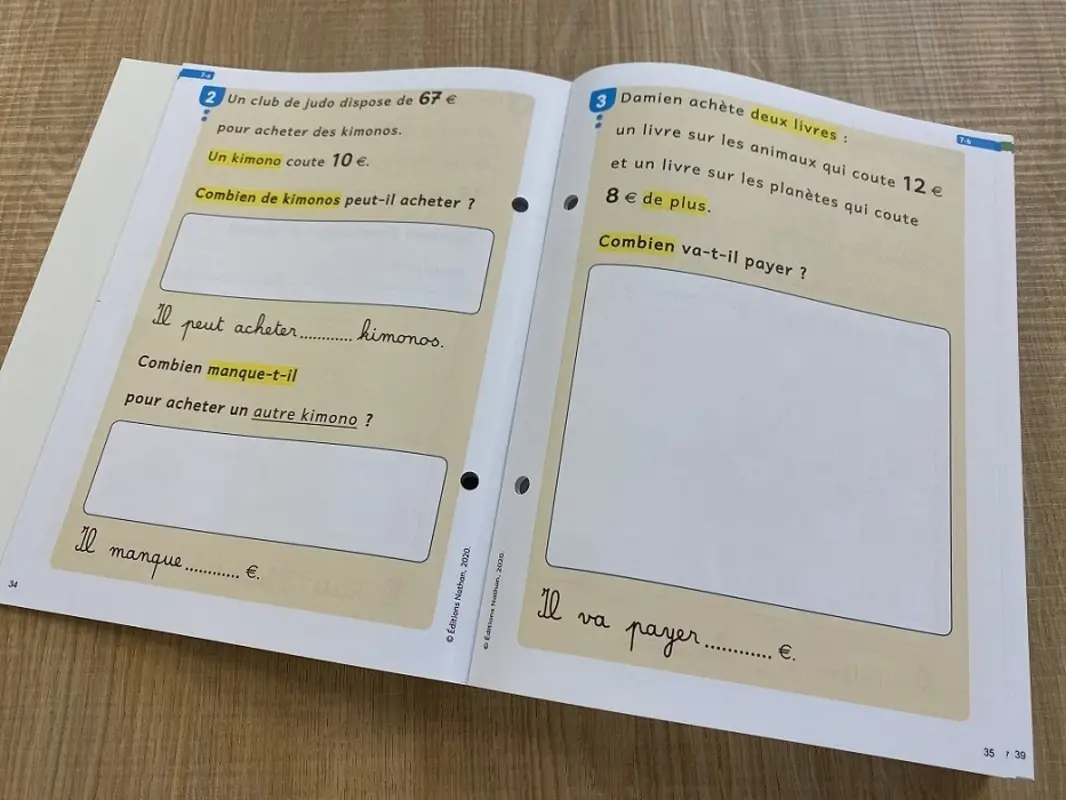 7-a
2 Un club de judo dispose de 67 €
pour acheter des kimonos.
Un kimono coute 10 €.
Combien de kimonos peut-il acheter ?
Il peut acheter ............ kimonos.
Combien manque-t-il
pour acheter un autre kimono ?
Il manque ............ €.
34
© Éditions Nathan, 2020.
7-b
3 Damien achète deux livres :
un livre sur les animaux qui coute 12 €
et un livre sur les planètes qui coute
8 € de plus.
Combien va-t-il payer ?
Il va payer ............ €.
© Éditions Nathan, 2020.
35
39